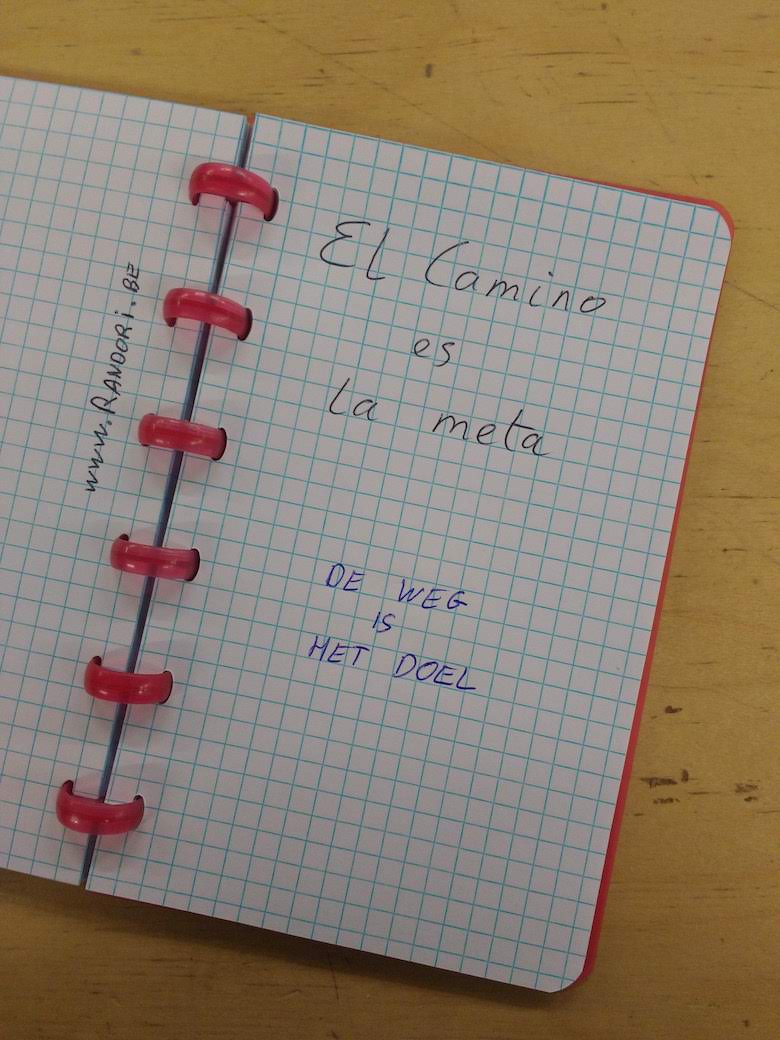 www.RANDORi.BE
El Camino
es
la meta
DE WEG
IS
HET DOEL